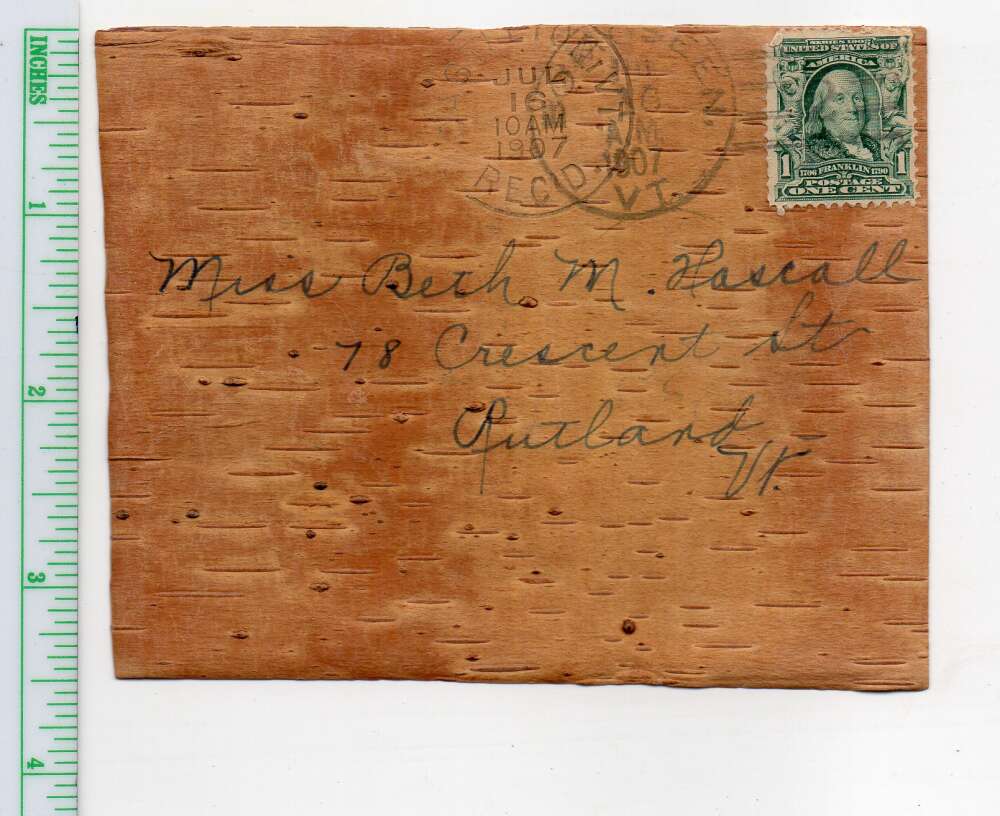 INCHES
1
2
3
4
JUL
16
10 AM
1907
REC'D.
VT.
A.M.
1907
VT.
SERIES 1902
UNITED STATES OF
AMERICA
1 1
1706 FRANKLIN 1790
POSTAGE
ONE CENT
Miss Beth M. Hascall
78 Crescent St
Rutland
Vt.